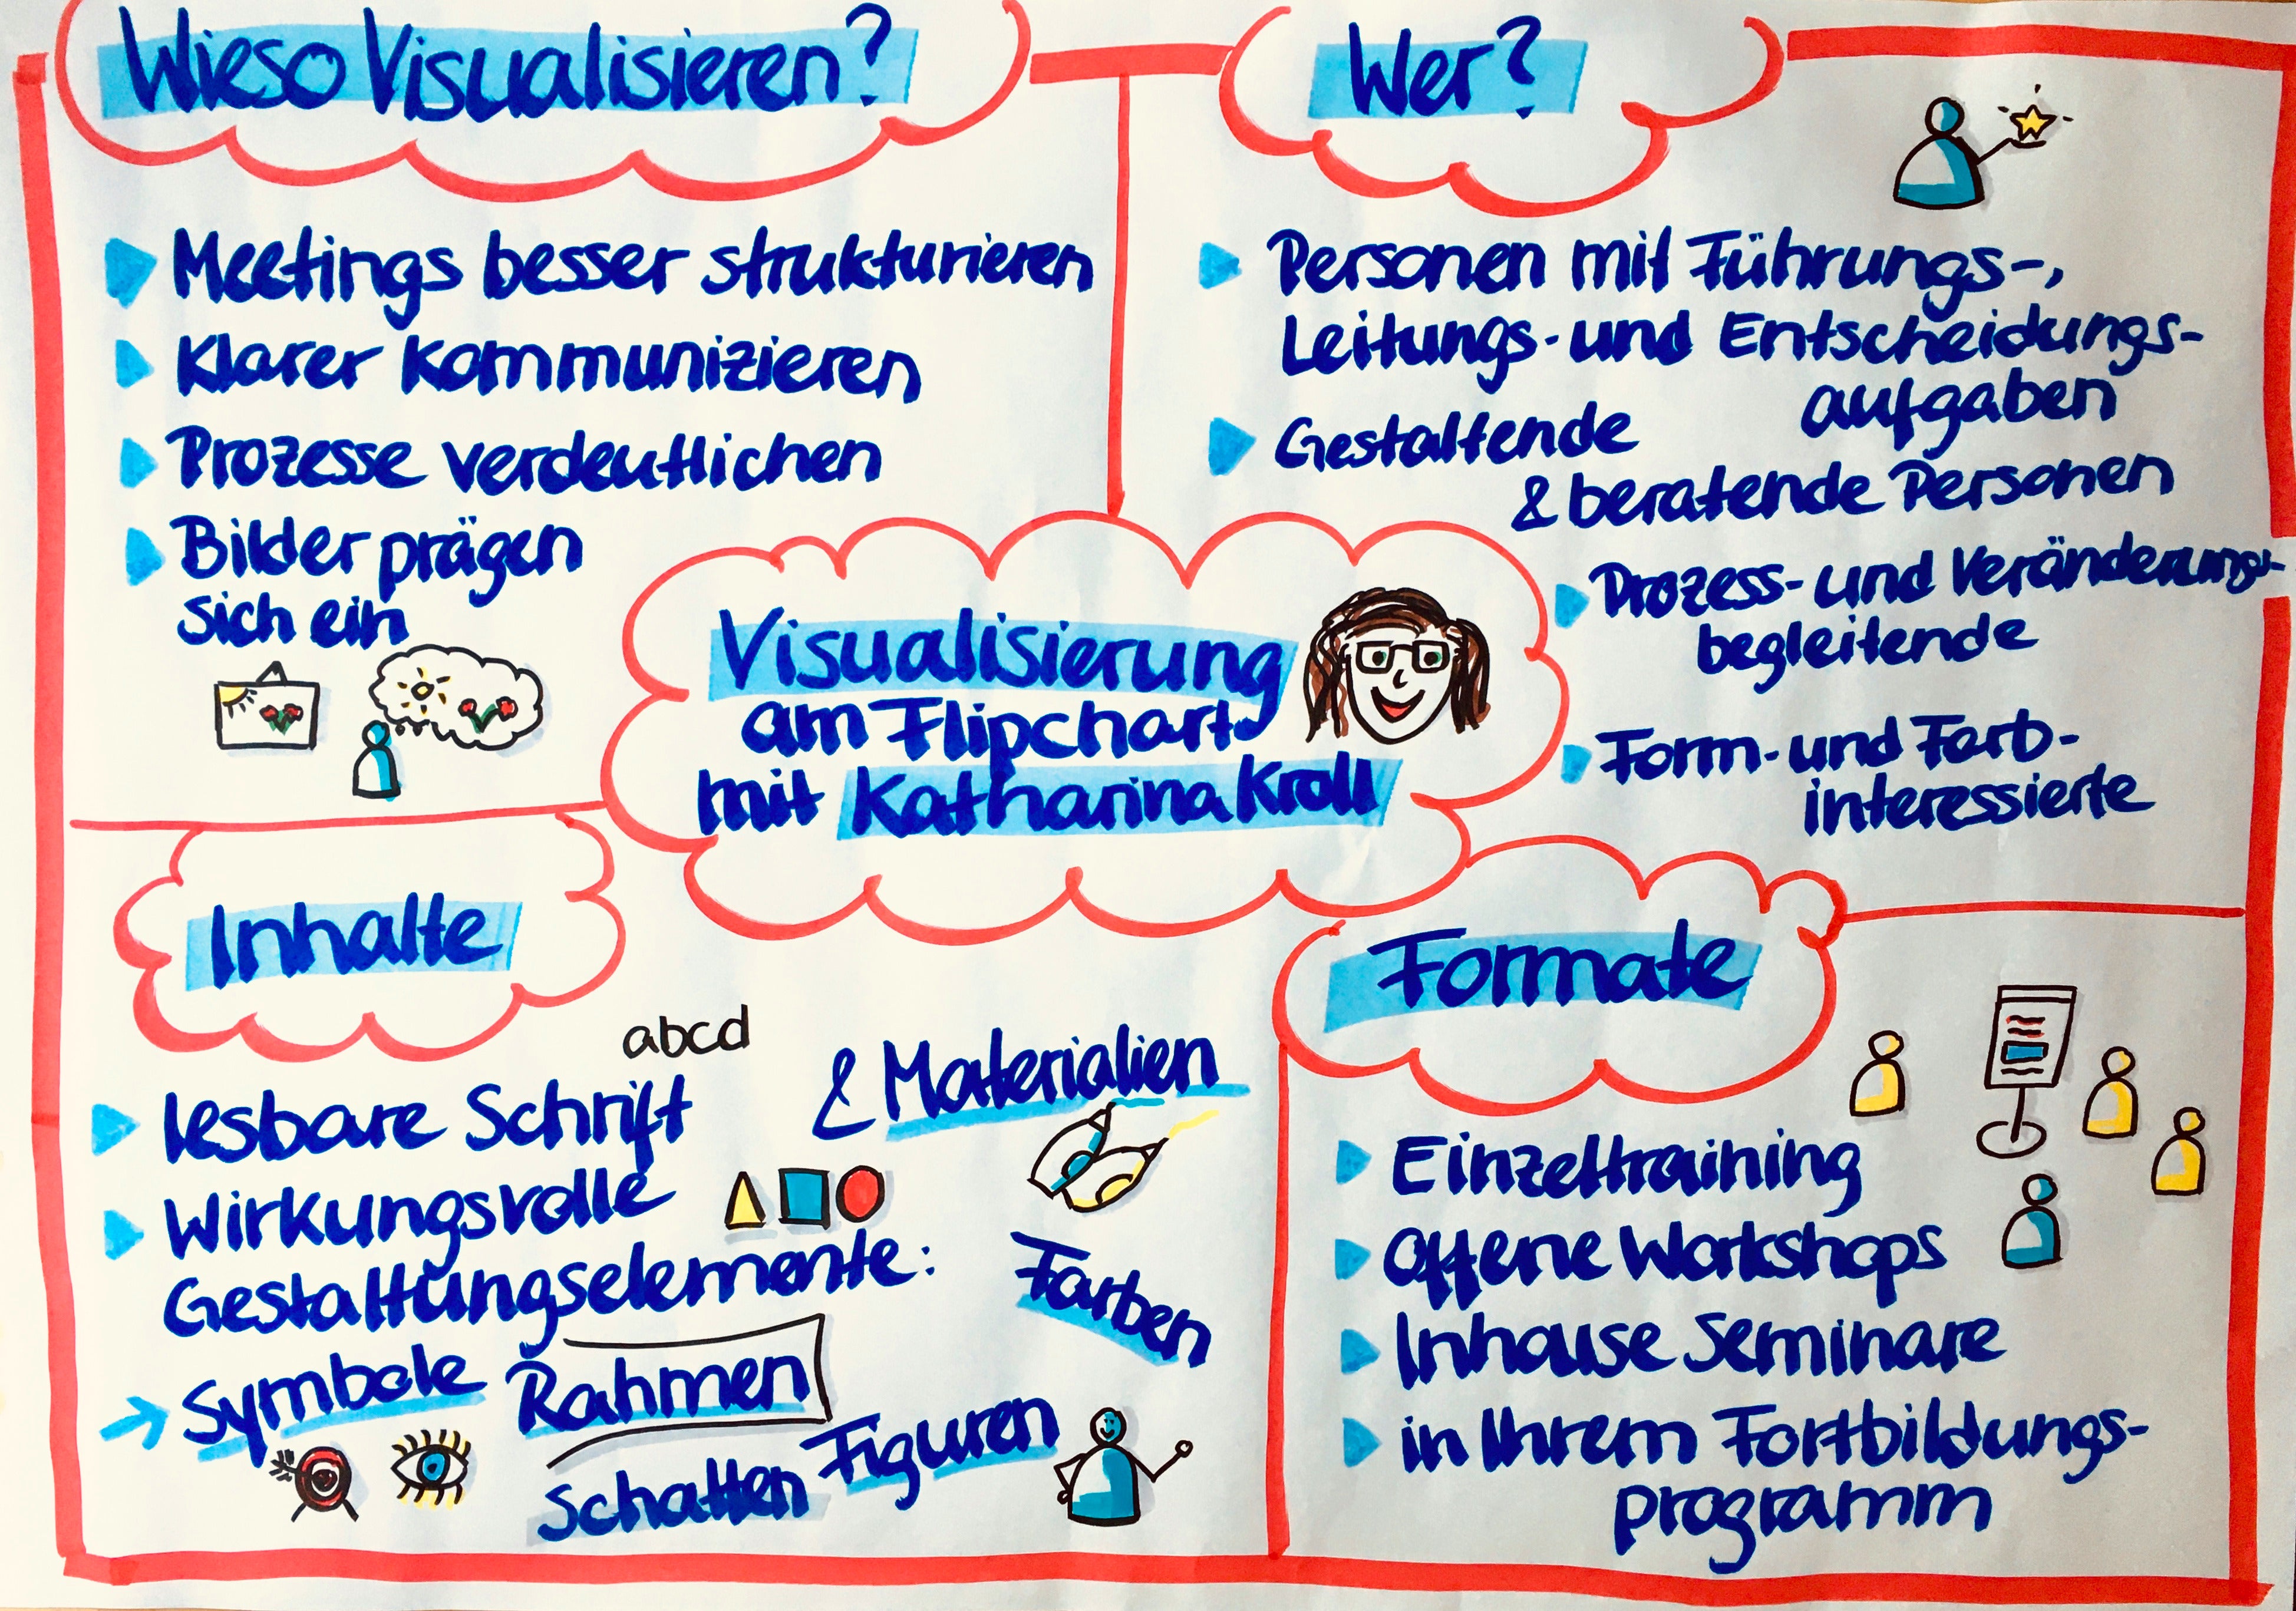 Wieso Visualisieren?
Meetings besser strukturieren
Klarer kommunizieren
Prozesse verdeutlichen
Bilder prägen
sich ein
Wer?
Personen mit Führungs-,
Leitungs- und Entscheidungs-
aufgaben
Gestaltende
& beratende Personen
Prozess- und Veränderungs-
begleitende
Form- und Farb-
interessierte
Visualisierung
am Flipchart
mit Katharina Kroll
Inhalte
abcd
lesbare Schrift
& Materialien
Wirkungsvolle
Gestaltungselemente:
Farben
→ Symbole Rahmen
Schatten Figuren
Formate
Einzeltraining
Offene Workshops
Inhouse Seminare
in Ihrem Fortbildungs-
programm